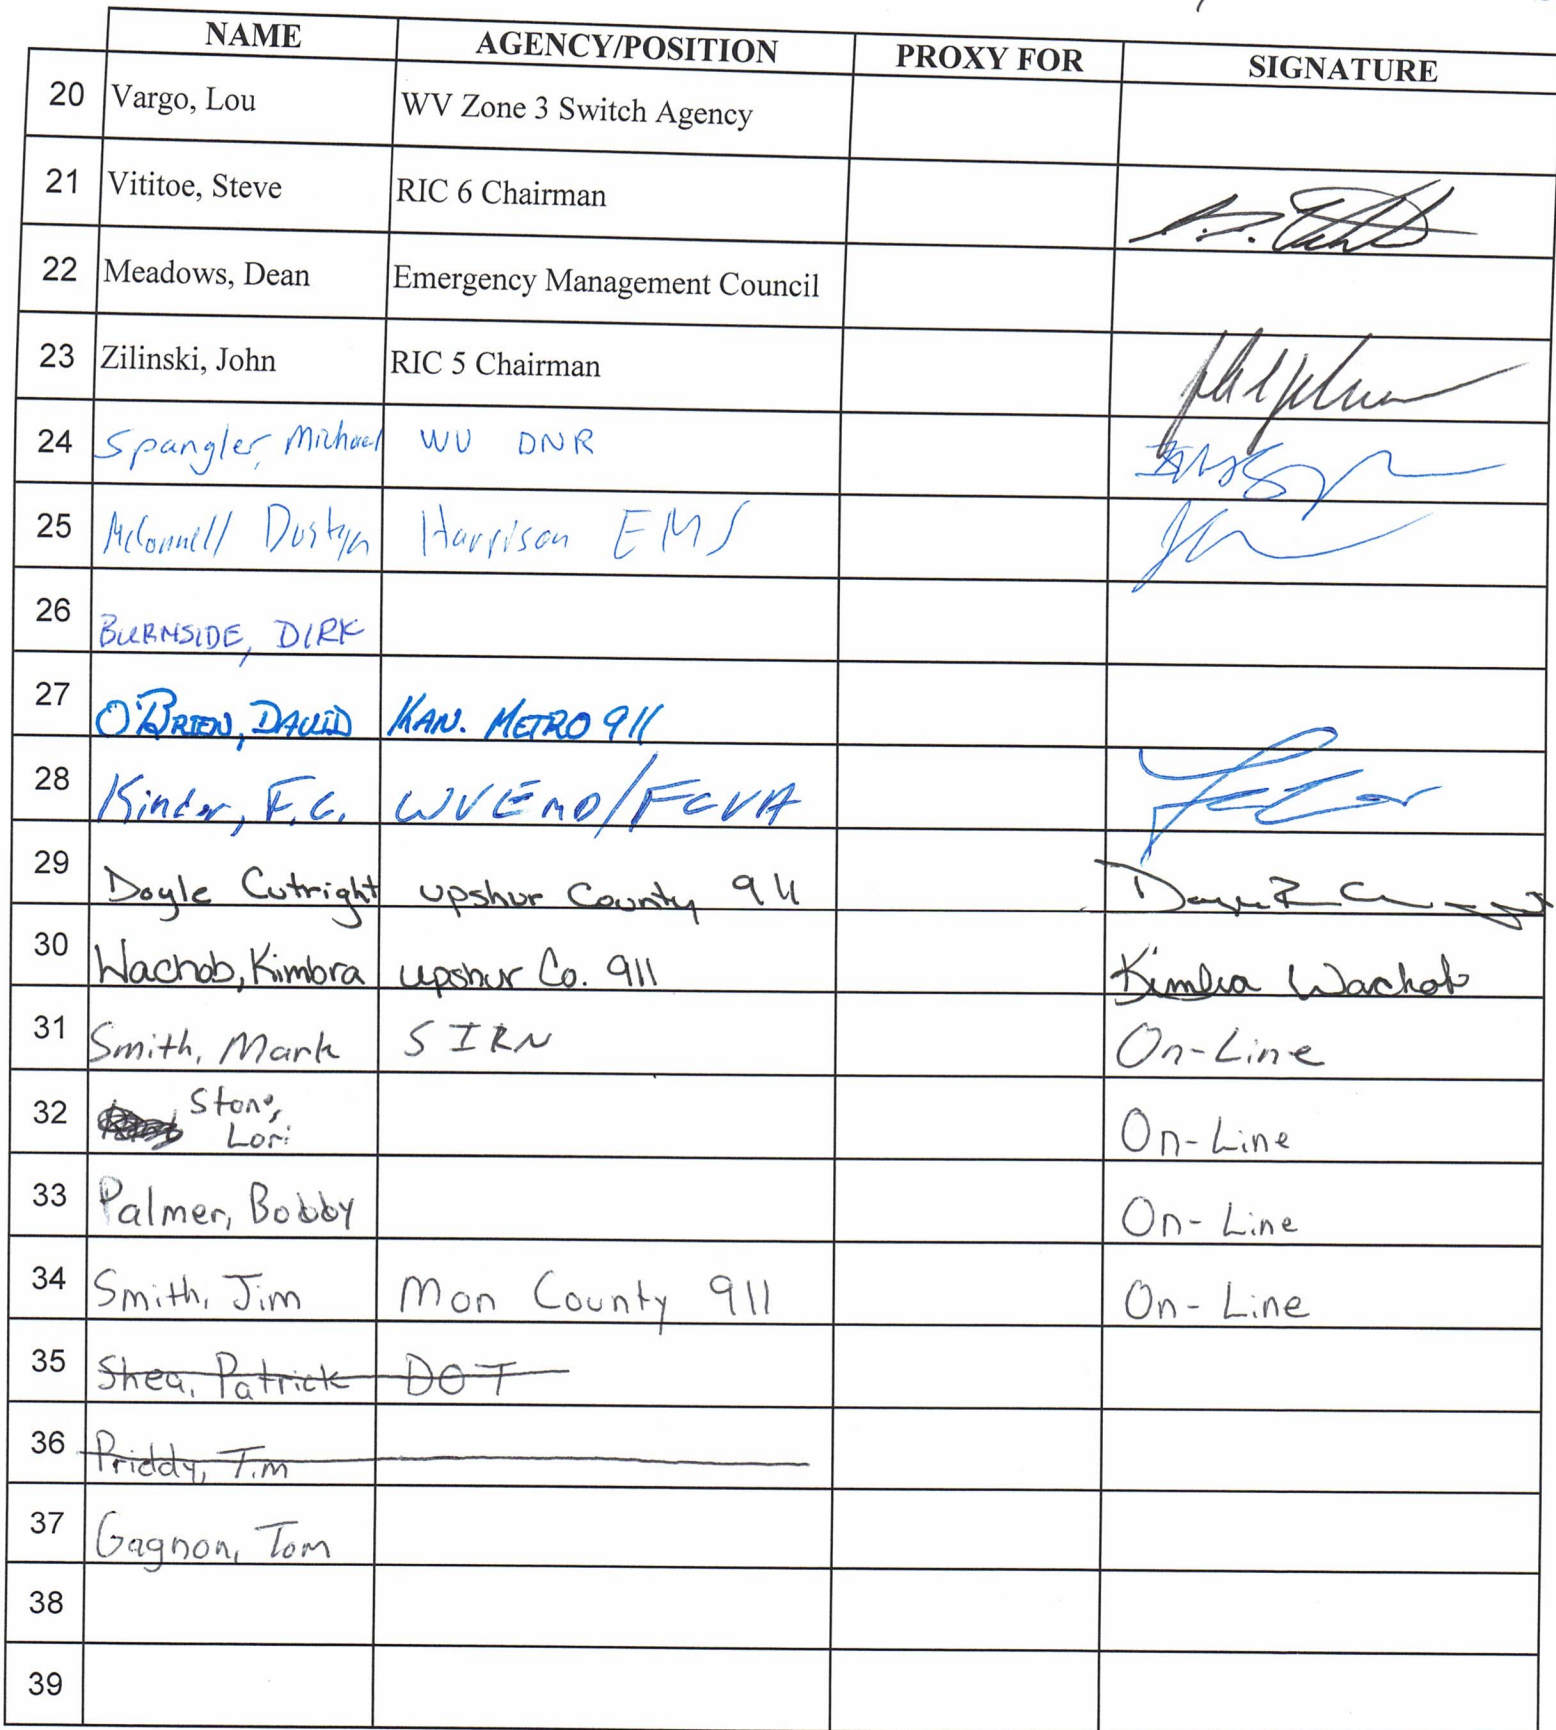 NAME AGENCY/POSITION PROXY FOR SIGNATURE
20 Vargo, Lou WV Zone 3 Switch Agency
21 Vititoe, Steve RIC 6 Chairman
22 Meadows, Dean Emergency Management Council
23 Zilinski, John RIC 5 Chairman
24 Spangler, Michael WV DNR
25 McConnell Dustyn Harrison EMS
26 BURNSIDE, DIRK
27 O'BRIEN, DAVID KAN. METRO 911
28 Kinder, F.C. WVEMD/FCVA
29 Doyle Cutright upshur County 911
30 Wachob, Kimbra upshur Co. 911 Kimbra Wachob
31 Smith, Mark SIRN On-Line
32 Stone,
Lori On-Line
33 Palmer, Bobby On-Line
34 Smith, Jim Mon County 911 On-Line
35 Shea, Patrick DOT
36 Priddy, Tim
37 Gagnon, Tom
38
39